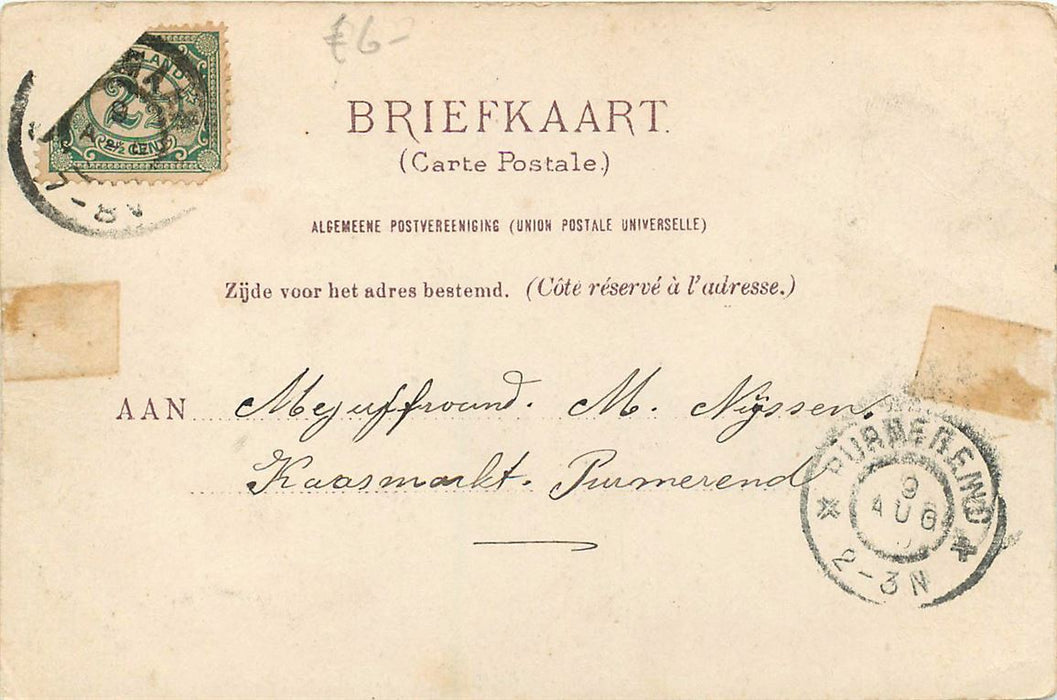 £6-
LAND
2½
2½ CENT
8-
BRIEFKAART.
(Carte Postale.)
ALGEMEENE POSTVEREENIGING (UNION POSTALE UNIVERSELLE)
Zijde voor het adres bestemd. (Côté réservé à l'adresse.)
AAN Mejuffrouw. M. Nijssen,
Kaasmarkt. Purmerend
PURMEREND
9
AUG
2-3N